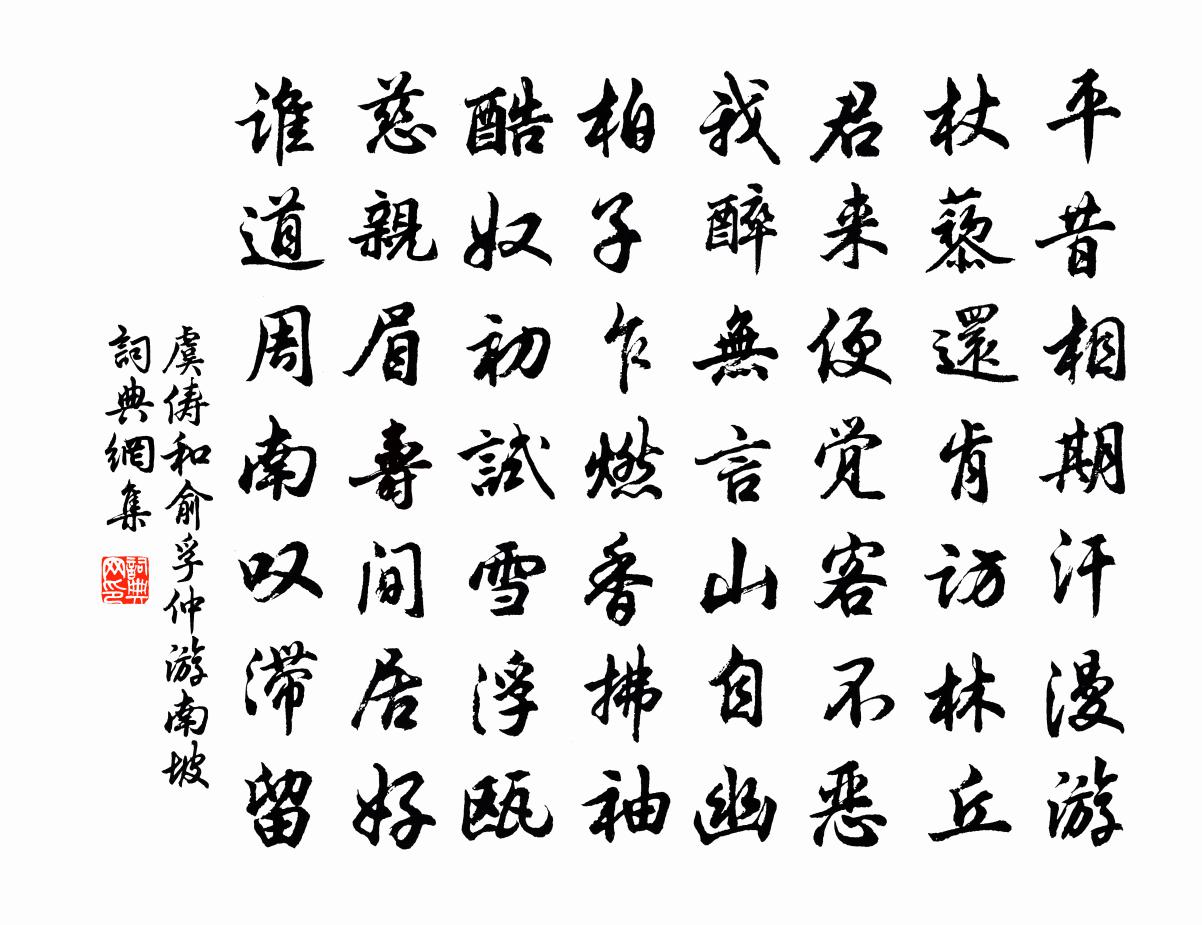 平昔相期汗漫游
杖藜還肯訪林丘
君来便觉客不恶
我醉無言山自幽
柏子乍燃香拂袖
酷奴初試雪浮瓯
慈親眉壽間居好
谁道周南叹滞留
虞俦和俞孚仲游南坡
詞典網集
詞典网印